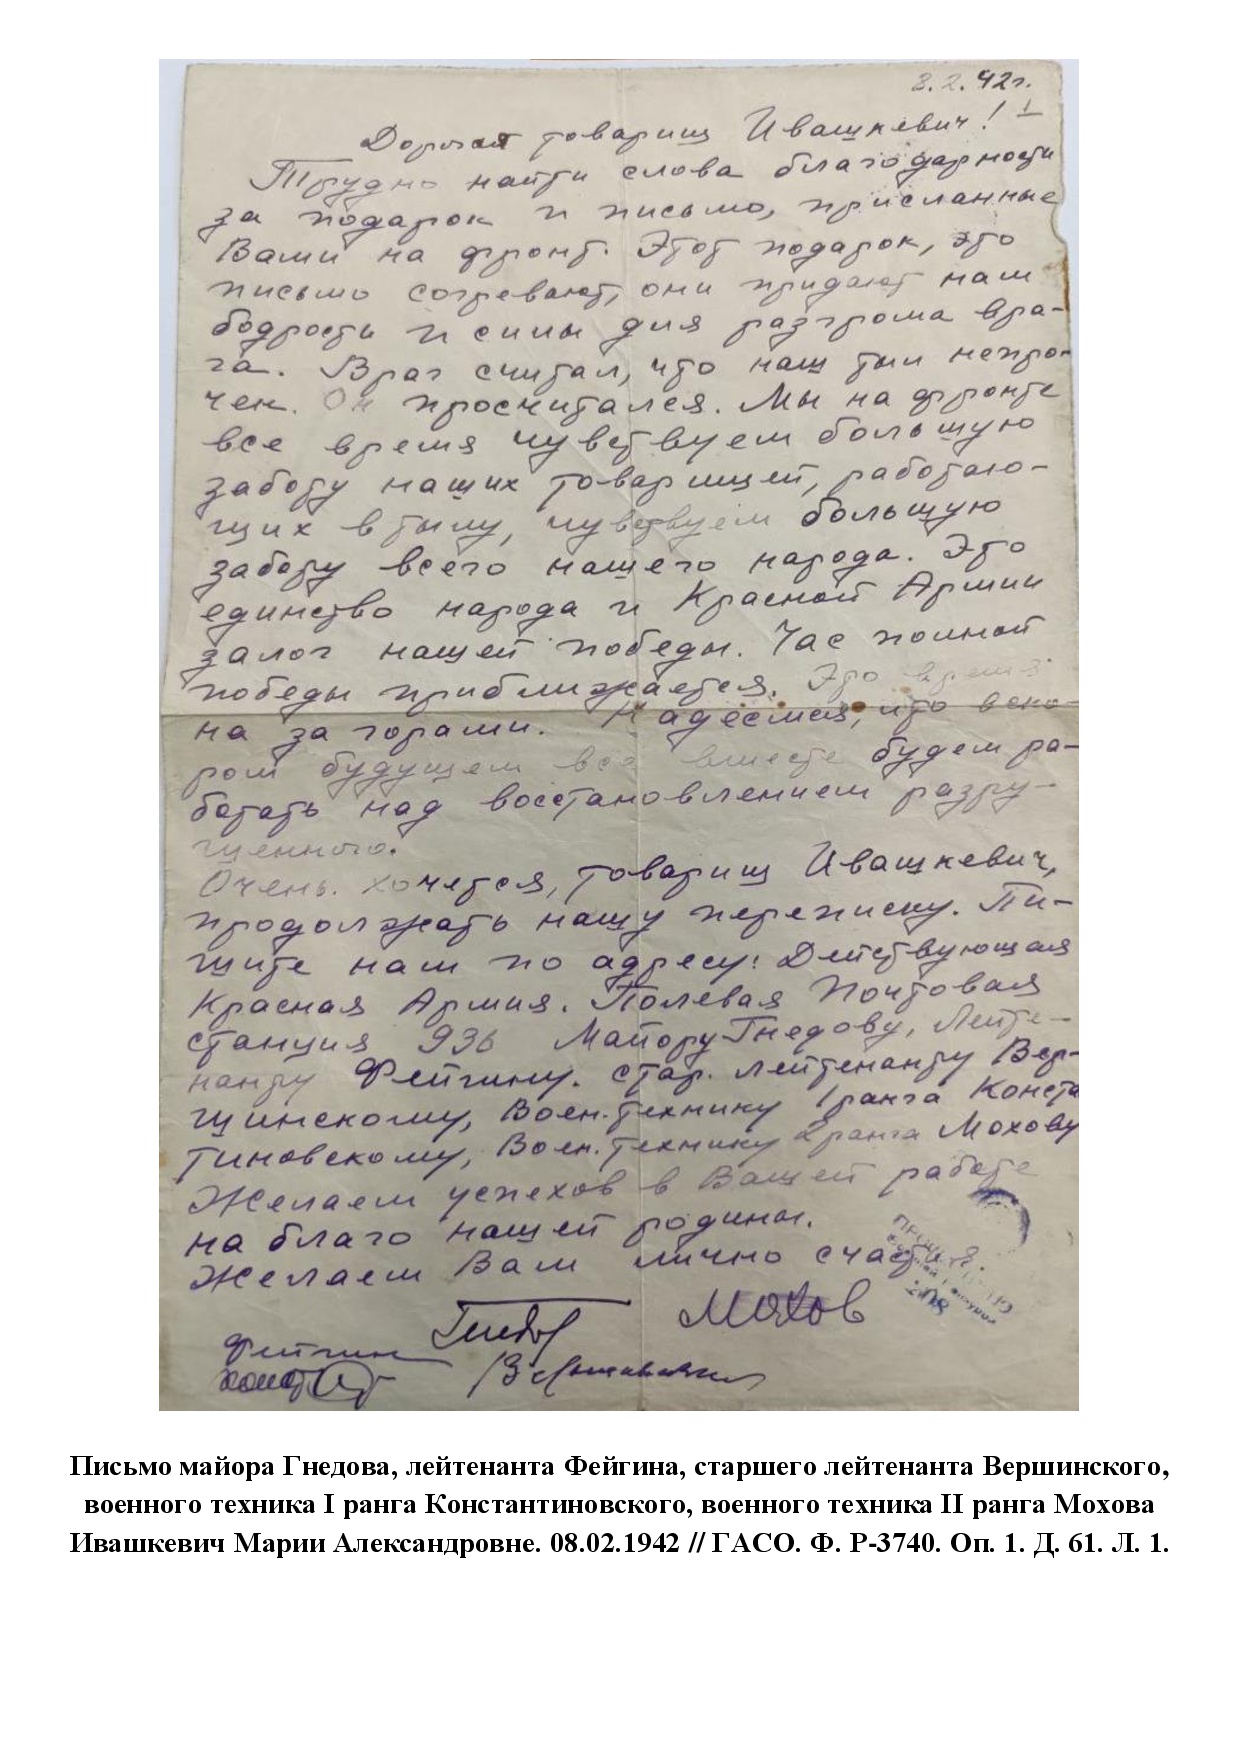 8.2.42г.
1
Дорогая товарищ Ивашкевич!
Трудно найти слова благодарности
за подарок и письмо, присланные
Вами на фронт. Этот подарок, это
письмо согревают, они придают нам
бодрость и силы для разгрома вра-
га. Враг считал, что наш тыл непро-
чен. Он просчитался. Мы на фронте
все время чувствуем большую
заботу наших товарищей, работаю-
щих в тылу, чувствуем большую
заботу всего нашего народа. Это
единство народа и Красной Армии
залог нашей победы. Час полной
победы приближается. Это время
на за горами. Надеемся, что в ско-
ром будущем все вместе будем ра-
ботать над восстановлением разру-
шенного.
Очень хочется, товарищ Ивашкевич,
продолжать нашу переписку. Пи-
шите нам по адресу: Действующая
Красная Армия. Полевая Почтовая
станция 936 Майору Гнедову, Лейте-
нанту Фейгину. стар. лейтенанту Вер-
шинскому, Воен. технику I ранга Конста
тиновскому, Воен. технику 2 ранга Мохову
Желаем успехов в Вашей работе
на благо нашей родины.
Желаем Вам лично счастья.
Гнедов Мохов
Фейгин
Письмо майора Гнедова, лейтенанта Фейгина, старшего лейтенанта Вершинского,
военного техника I ранга Константиновского, военного техника II ранга Мохова
Ивашкевич Марии Александровне. 08.02.1942 // ГАСО. Ф. Р-3740. Оп. 1. Д. 61. Л. 1.